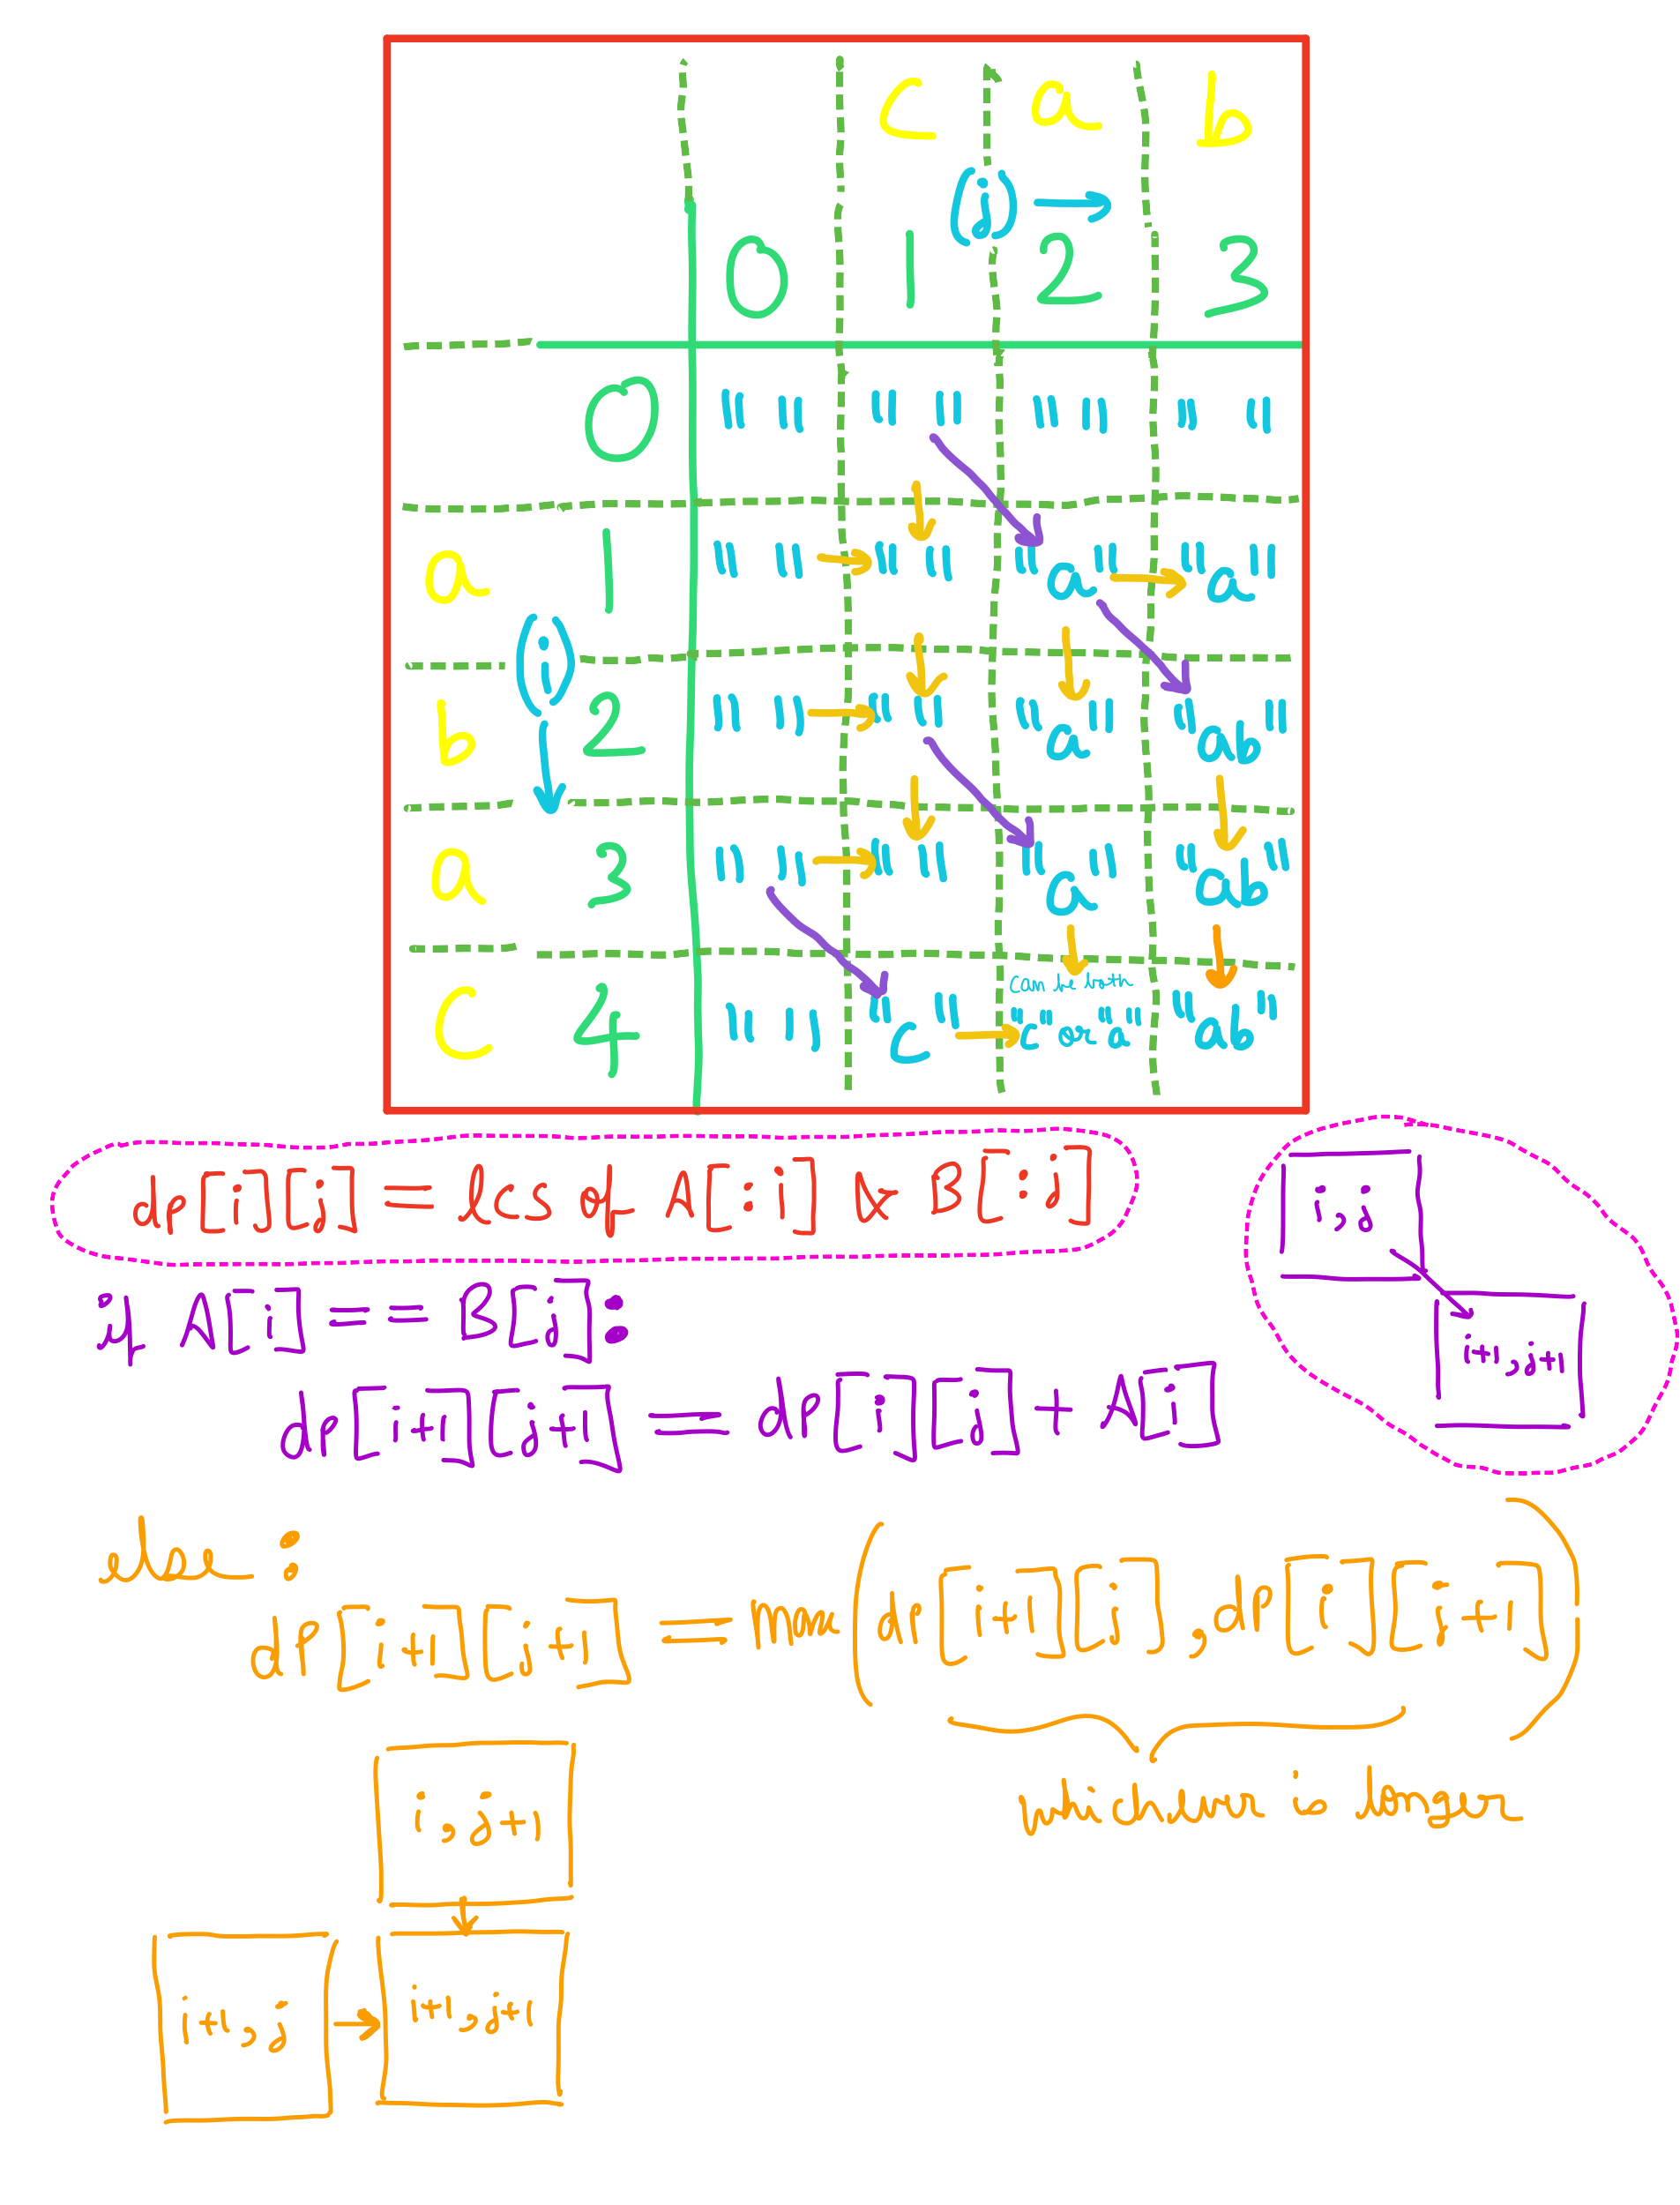 c a b
(j) →
0 1 2 3
0 " " " " " " " "
a 1 " " " " "a" "a"
(i)
b 2 " " " " "a" "ab"
a 3 " " " " "a" "ab"
can be both
c 4 " " "c" "c" or "a" "ab"
dp[i][j] = lcs of A[:i] & B[:j]
i,j
if A[i] == B[j]:
i+1,j+1
dp[i+1][j+1] = dp[i][j] + A[i]
else :
dp[i+1][j+1] = max(dp[i+1][i], dp[i][j+1])
whichever is longer
i,j+1
i+1,j
i+1,j+1